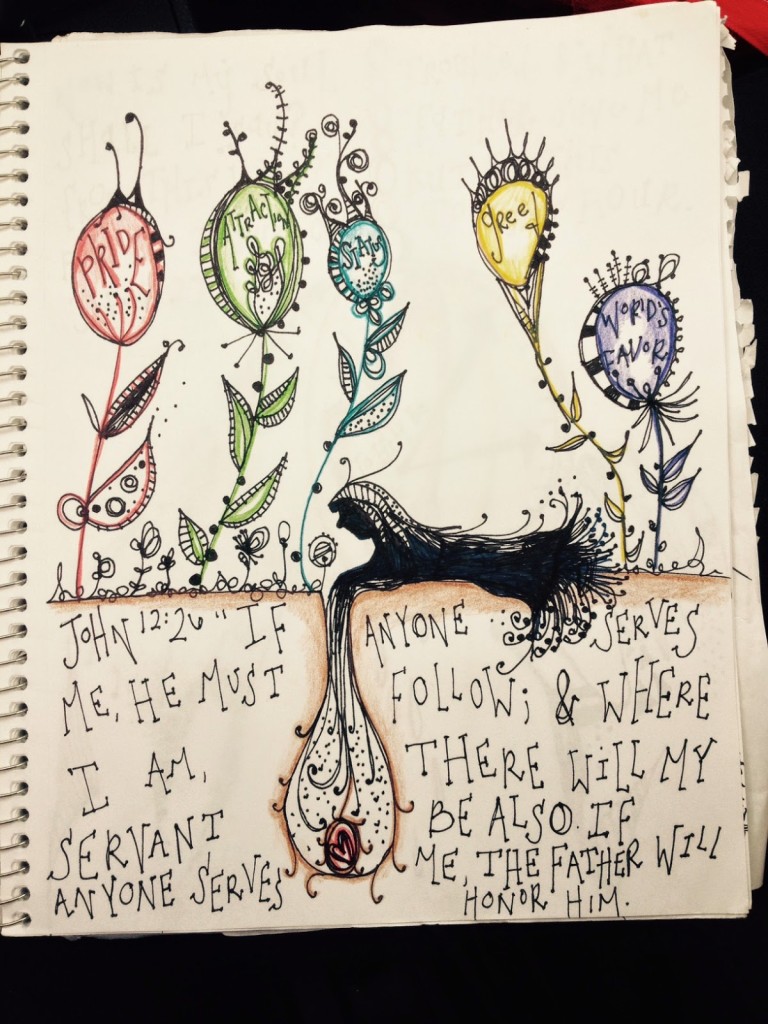 PRIDE
ATTRACTION
STATUS
greed
WORLD'S
FAVOR
JOHN 12:26 "IF ANYONE SERVES
ME, HE MUST FOLLOW; & WHERE
I AM, THERE WILL MY
SERVANT, BE ALSO. IF
ANYONE SERVES ME, THE FATHER WILL
HONOR HIM.